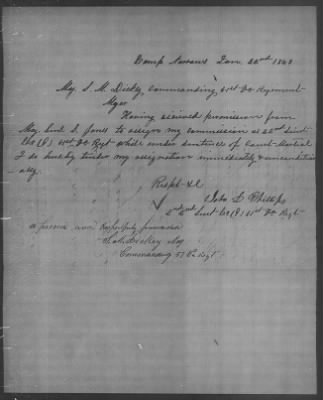 Camp Narrows Jan 22nd 1863
Maj. S. M. Dickey, Commanding, 51st Va Regiment
Major
Having received permission from
Maj. Genl. S. Jones to resign my commission as 2nd Lieut.
Co (F) 51st Va Regt while under sentence of Court-Martial
I do hereby tender my resignation immediately & unconditionally
ally.
Respt &c
John D Phillips
2nd Lieut Co (F) 51st Va Regt
Approved and Respectfully forwarded
S. M. Dickey Maj
Commanding 51 Va Regt